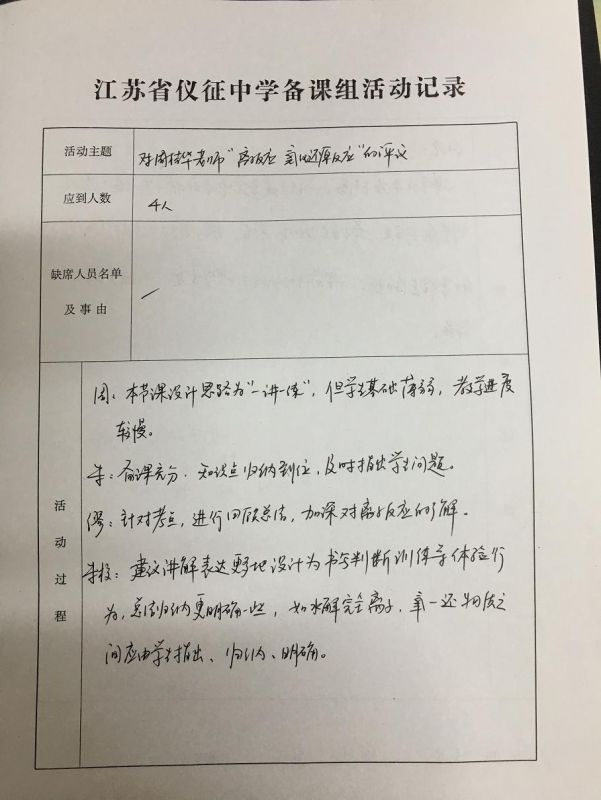 江苏省仪征中学备课组活动记录
活动主题
对周桂华老师“离子反应 氧化还原反应”的评议
应到人数
4人
缺席人员名单
及事由
/
活动过程
周：本节课设计思路为“一讲一练”，但学生基础薄弱，教学进度
较慢。
李：备课充分，知识点归纳到位，及时指出学生问题。
缪：针对考点，进行回顾总结，加深对离子反应的了解。
李校：建议讲解表达更多地设计为书写判断训练等体验行
为，总结归纳更明确一些，如水解完全离子，氧一还
间应由学生指出、归纳、明确。